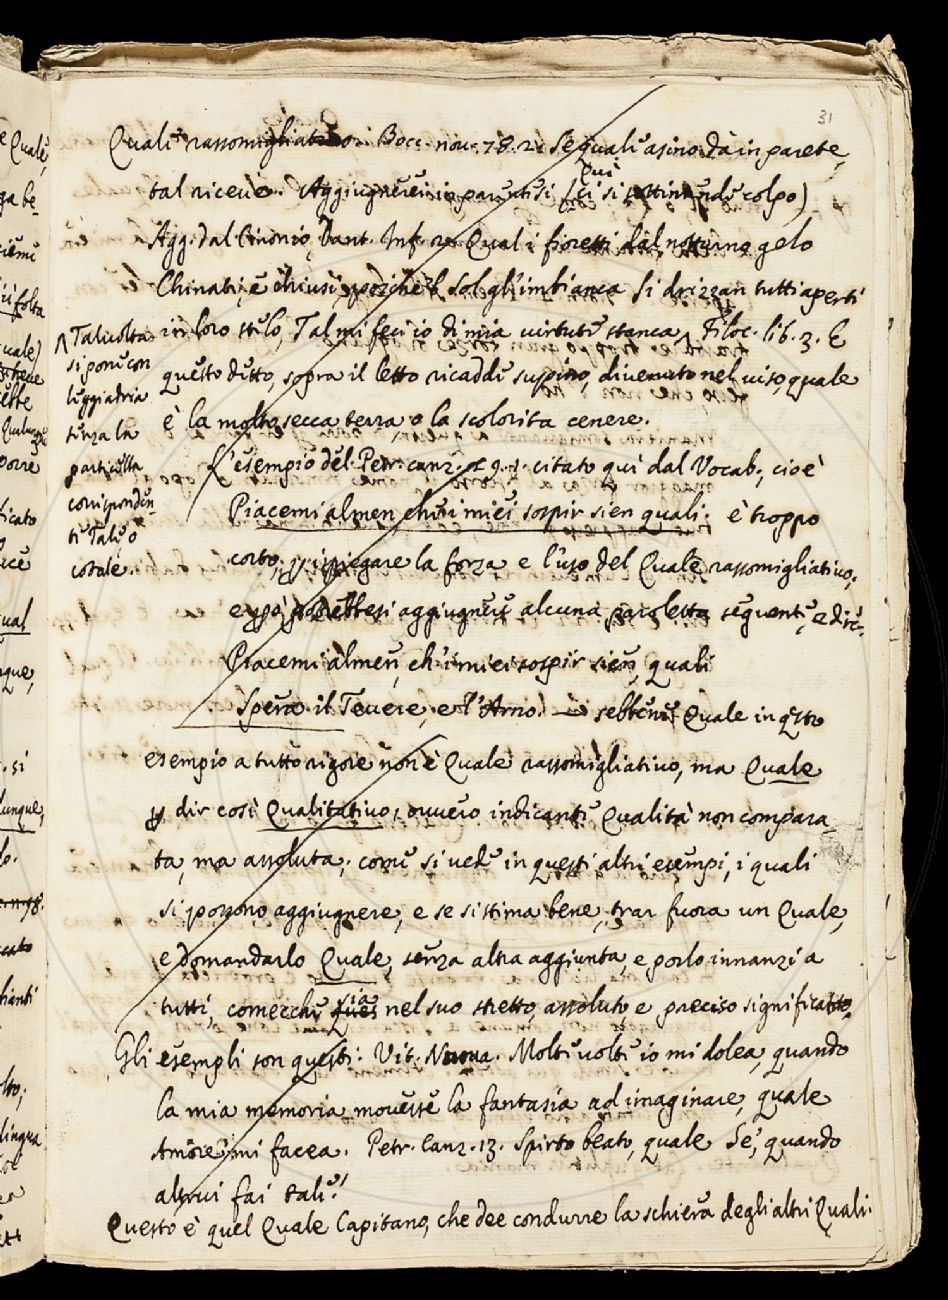 31
Quale rassomigliativo. Bocc. nov. 78. 2. Se quale asino dà in parete,
tal riceve. Aggiugnerei in parentesi (qui si sottintende colpo)
Agg. dal Cinonio, Dant. Inf. 2. Qual i fioretti dal notturno gelo
Chinati, e chiusi, poiche 'l Sol gl'imbianca Si drizzan tutti aperti
in loro stelo, Tal mi feci io di mia virtute stanca. Filoc. lib. 3. E
questo detto, sopra il letto ricadde supino, divenuto nel viso, quale
è la molto secca terra o la scolorita cenere.
Λ Talvolta
si pone con
leggiadria
senza la
particella
corrisponden-
te Tale o
cotale.
L'esempio del Petr. canz. citato qui dal Vocab. cioè
Piacemi almen, che i miei sospir sien quali. è troppo
corto, per ispiegare la forza e l'uso del Quale rassomigliativo;
e però potrebbesi aggiugnere alcuna paroletta seguente, e dire.
Piacemi almen, ch'i miei sospir sien, quali
Spera il Tevere, e l'Arno. — sebbene Quale in qsto
esempio a tutto rigore non è Quale rassomigliativo, ma Quale
p dir così Qualitativo, ovvero indicante Qualità non compara
ta, ma assoluta; come si vede in questi altri esempi, i quali
si possono aggiugnere, e se si stima bene, trar fuora un Quale,
e domandarlo Quale, senza altra aggiunta, e porlo innanzi a
tutti, comecchè sia nel suo stretto, assoluto e preciso significato.
Gli esempli son questi: Vit. Nuova. Molte volte io mi dolea, quando
la mia memoria movesse la fantasia ad imaginare, quale
Amore mi facea. Petr. Canz. 13. Spirto beato, quale Se', quando
altrui fai tale!
Questo è quel Quale Capitano, che dee condurre la schiera degli altri Quali.